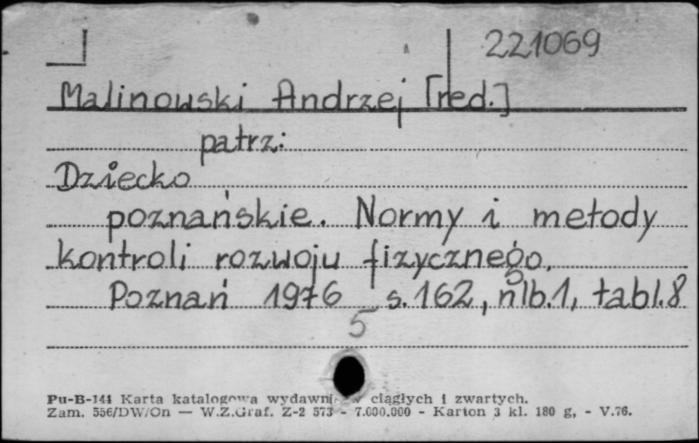 221069
Malinowski Andrzej [red.]
patrz:
Dziecko
poznańskie. Normy i metody
kontroli rozwoju fizycznego.
Poznań 1976 s. 162, nlb.1, tabl.8
5
Pu-B-144 Karta katalogowa wydawnictw ciągłych i zwartych.
Zam. 556/DW/On — W.Z.Graf. Z-2 573 - 7.000.000 - Karton 3 kl. 180 g, - V.76.